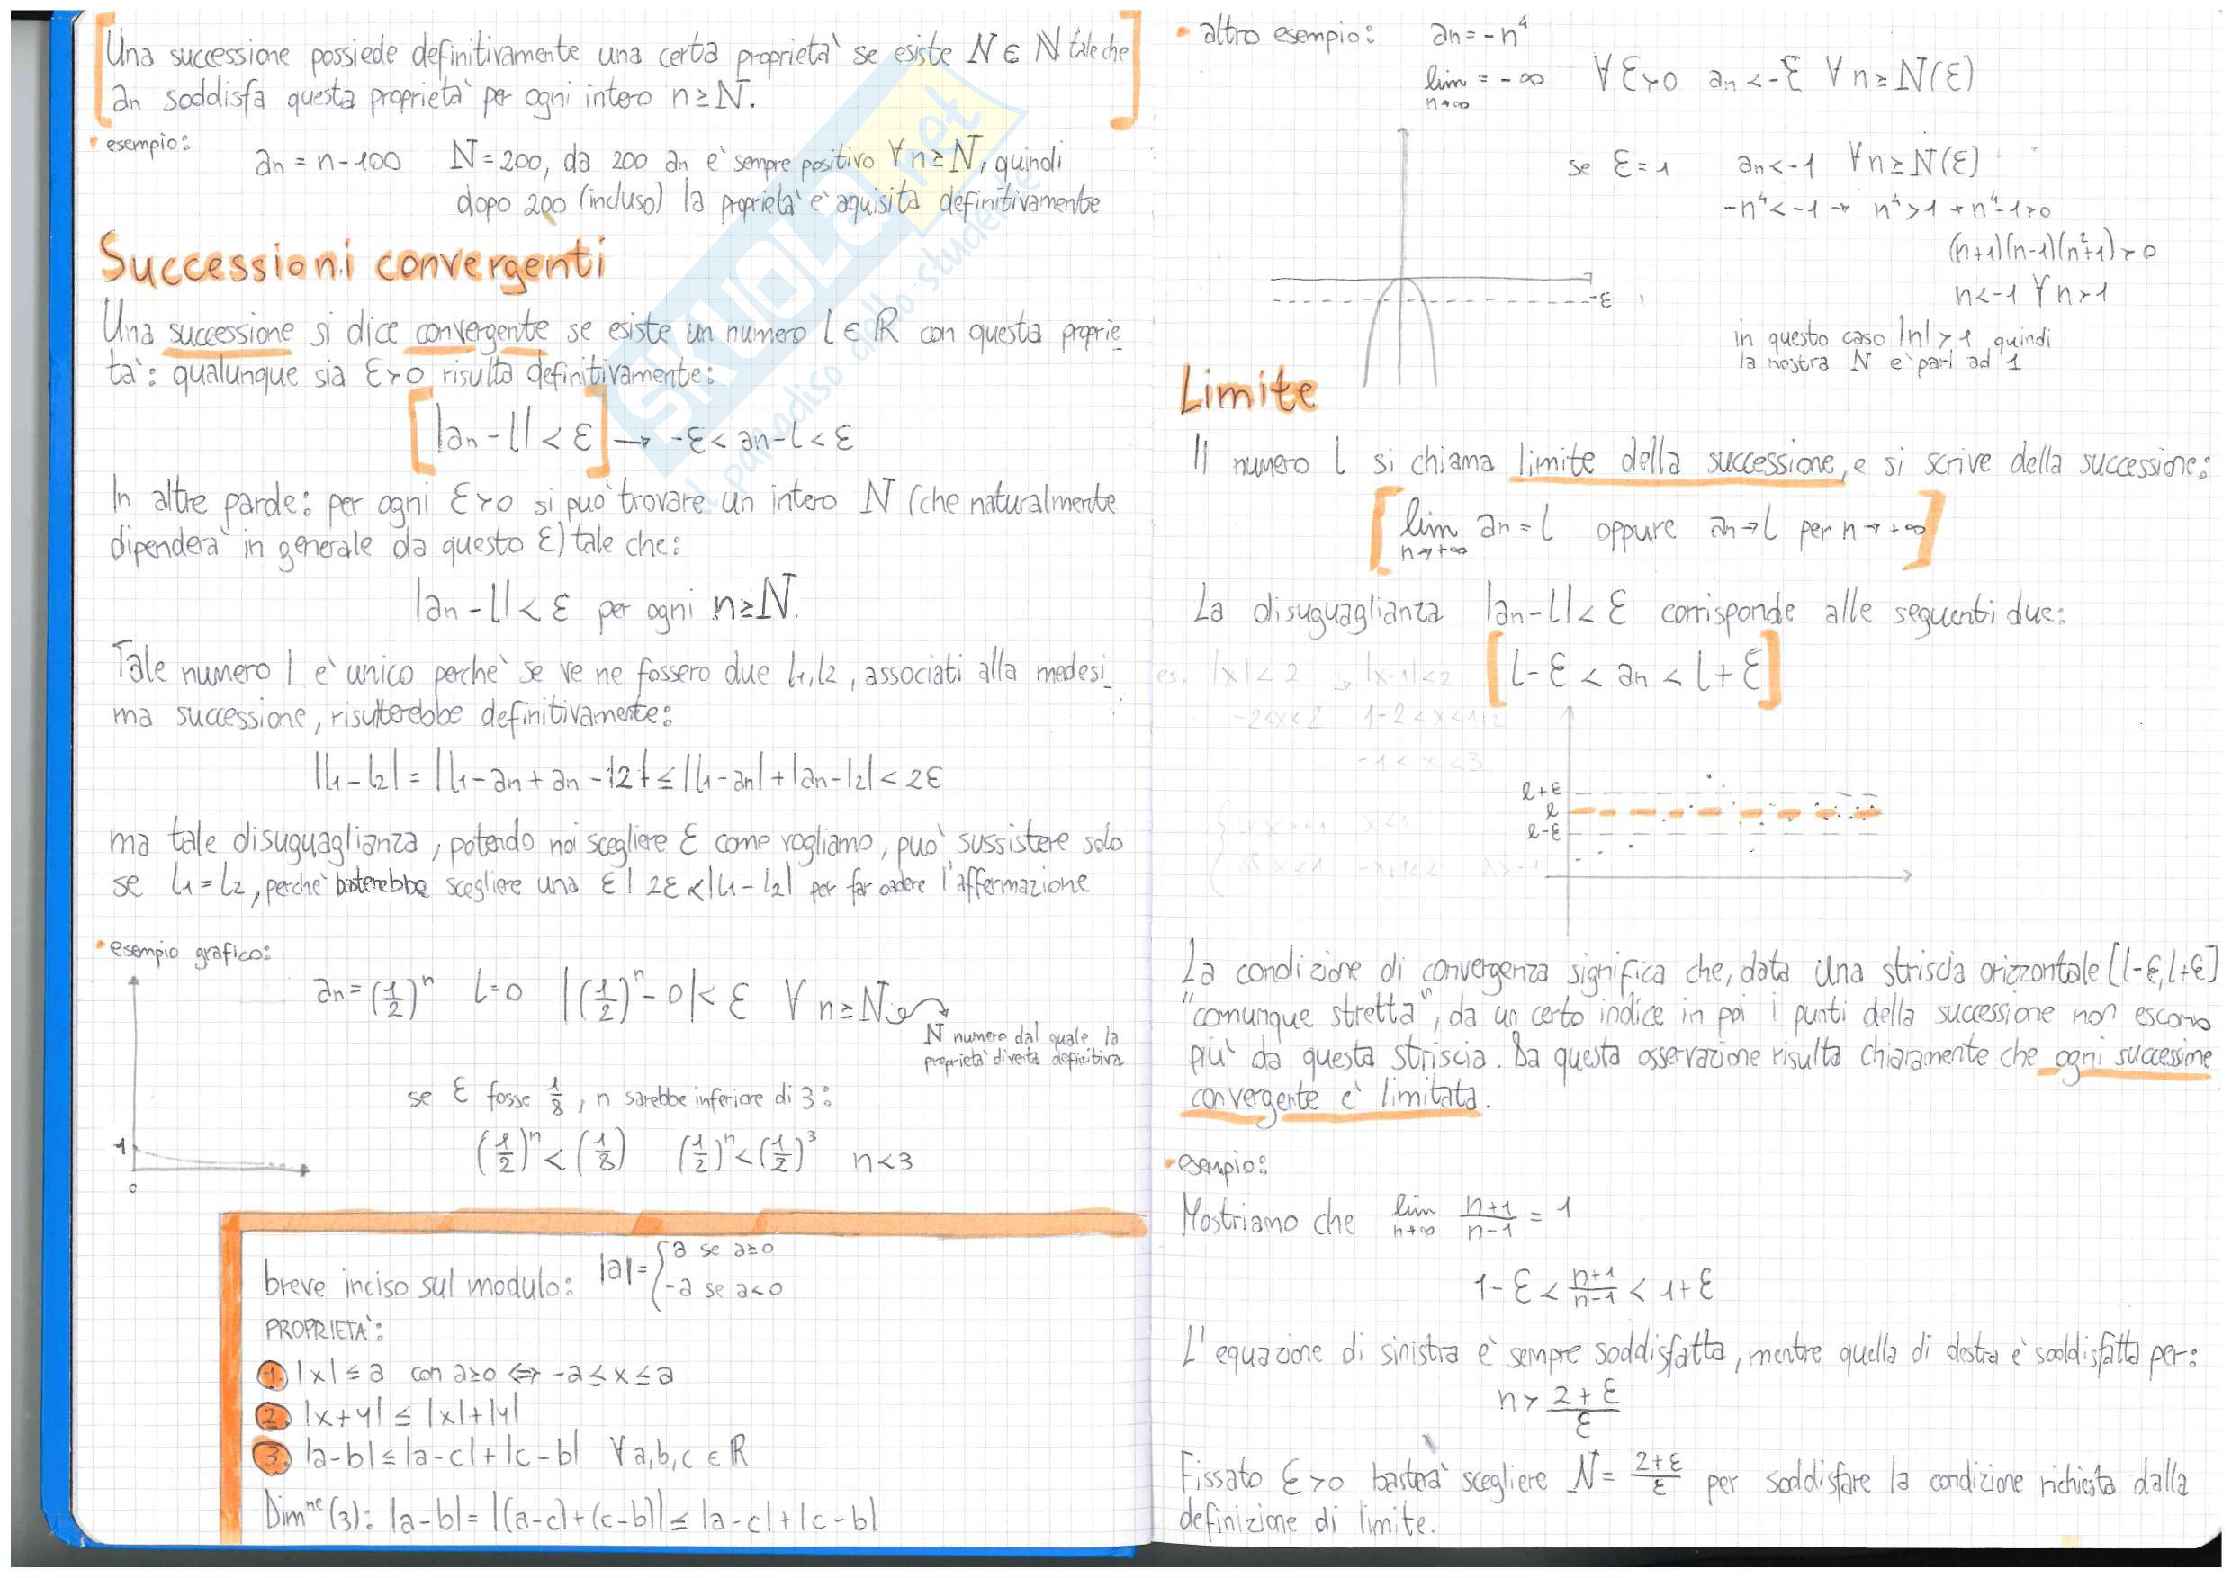 Una successione possiede definitivamente una certa proprietà se esiste N ∈ ℕ tale che
an soddisfa questa proprietà per ogni intero n≥N.
• esempio:
an = n-100 N=200, da 200 an è sempre positivo ∀n≥N, quindi
dopo 200 (incluso) la proprietà è aquisita definitivamente
Successioni convergenti
Una successione si dice convergente se esiste un numero l∈ℝ con questa proprie_
tà: qualunque sia ε>0 risulta definitivamente:
[|an - l| < ε] → -ε < an-l < ε
In altre parole: per ogni ε>0 si può trovare un intero N (che naturalmente
dipenderà in generale da questo ε) tale che:
|an - l| < ε per ogni n≥N.
Tale numero l è unico perchè se ve ne fossero due l1, l2, associati alla medesi_
ma successione, risulterebbe definitivamente:
|l1 - l2| = |l1 - an + an - l2| ≤ |l1 - an| + |an - l2| < 2ε
ma tale disuguaglianza, potendo noi scegliere ε come vogliamo, può sussistere solo
se l1 = l2, perchè basterebbe scegliere una ε | 2ε < |l1 - l2| per far cadere l'affermazione
• esempio grafico:
an = (1/2)^n l=0 |(1/2)^n - 0| < ε ∀ n≥N
N numero dal quale la
proprietà diventa definitiva
se ε fosse 1/8, n sarebbe inferiore di 3:
(1/2)^n < (1/8) (1/2)^n < (1/2)^3 n<3
1
0
breve inciso sul modulo: |a| = { a se a≥0
-a se a<0
PROPRIETÀ:
1. |x| ≤ a con a≥0 ⇔ -a ≤ x ≤ a
2. |x+y| ≤ |x|+|y|
3. |a-b| ≤ |a-c| + |c-b| ∀ a,b,c ∈ ℝ
Dim^ne (3): |a-b| = |(a-c)+(c-b)| ≤ |a-c|+|c-b|
SKUOLA.net
il paradiso dello studente
• altro esempio: an = -n^4
lim n→∞ = -∞ ∀ ε>0 an < -ε ∀ n ≥ N(ε)
se ε=1 an < -1 ∀n≥N(ε)
-n^4 < -1 → n^4 > 1 → n^4-1>0
(n+1)(n-1)(n²+1)>0
n<-1 ∀ n>1
-ε
in questo caso |n|>1, quindi
la nostra N è pari ad 1
Limite
Il numero l si chiama limite della successione, e si scrive della successione:
[lim n→+∞ an = l oppure an→l per n→+∞]
La disuguaglianza |an-l| < ε corrisponde alle seguenti due:
es. |x|<2 → |x-1|<2 [l-ε < an < l+ε]
-2<x<2 1-2<x<1+2
-1<x<3
l+ε
l
l-ε
La condizione di convergenza significa che, data una striscia orizzontale [l-ε, l+ε]
"comunque stretta", da un certo indice in poi i punti della successione non escono
più da questa striscia. Da questa osservazione risulta chiaramente che ogni successione
convergente è limitata.
• esempio:
Mostriamo che lim n→∞ (n+1)/(n-1) = 1
1-ε < (n+1)/(n-1) < 1+ε
L'equazione di sinistra è sempre soddisfatta, mentre quella di destra è soddisfatta per:
n > (2+ε)/ε
Fissato ε>0 basterà scegliere N = (2+ε)/ε per soddisfare la condizione richiesta dalla
definizione di limite.